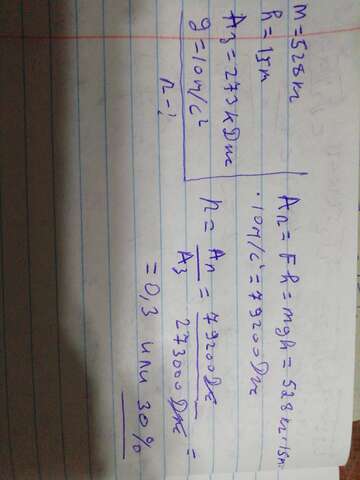 m=528кг
h=15м
Aз=273кДж
g=10м/с²
n-?
Aп=Fh=mgh=528кг·15м·
·10м/с²=79200Дж
n=Aп/Aз=79200Дж/273000Дж=
=0,3 или 30%